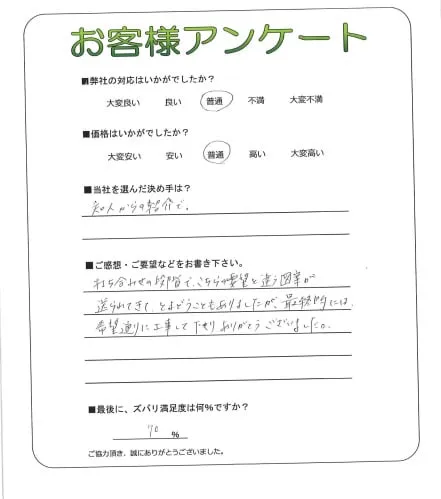 お客様アンケート
■弊社の対応はいかがでしたか？
大変良い 良い 普通 不満 大変不満
■価格はいかがでしたか？
大変安い 安い 普通 高い 大変高い
■当社を選んだ決め手は？
知人からの紹介で。
■ご感想・ご要望などをお書き下さい。
打ち合わせの段階で、こちらの要望と違う図案が
送られてきて、とまどうこともありましたが、最終的には、
希望通りに工事して下さりありがとうございました。
■最後に、ズバリ満足度は何%ですか？
70 %
ご協力頂き、誠にありがとうございました。